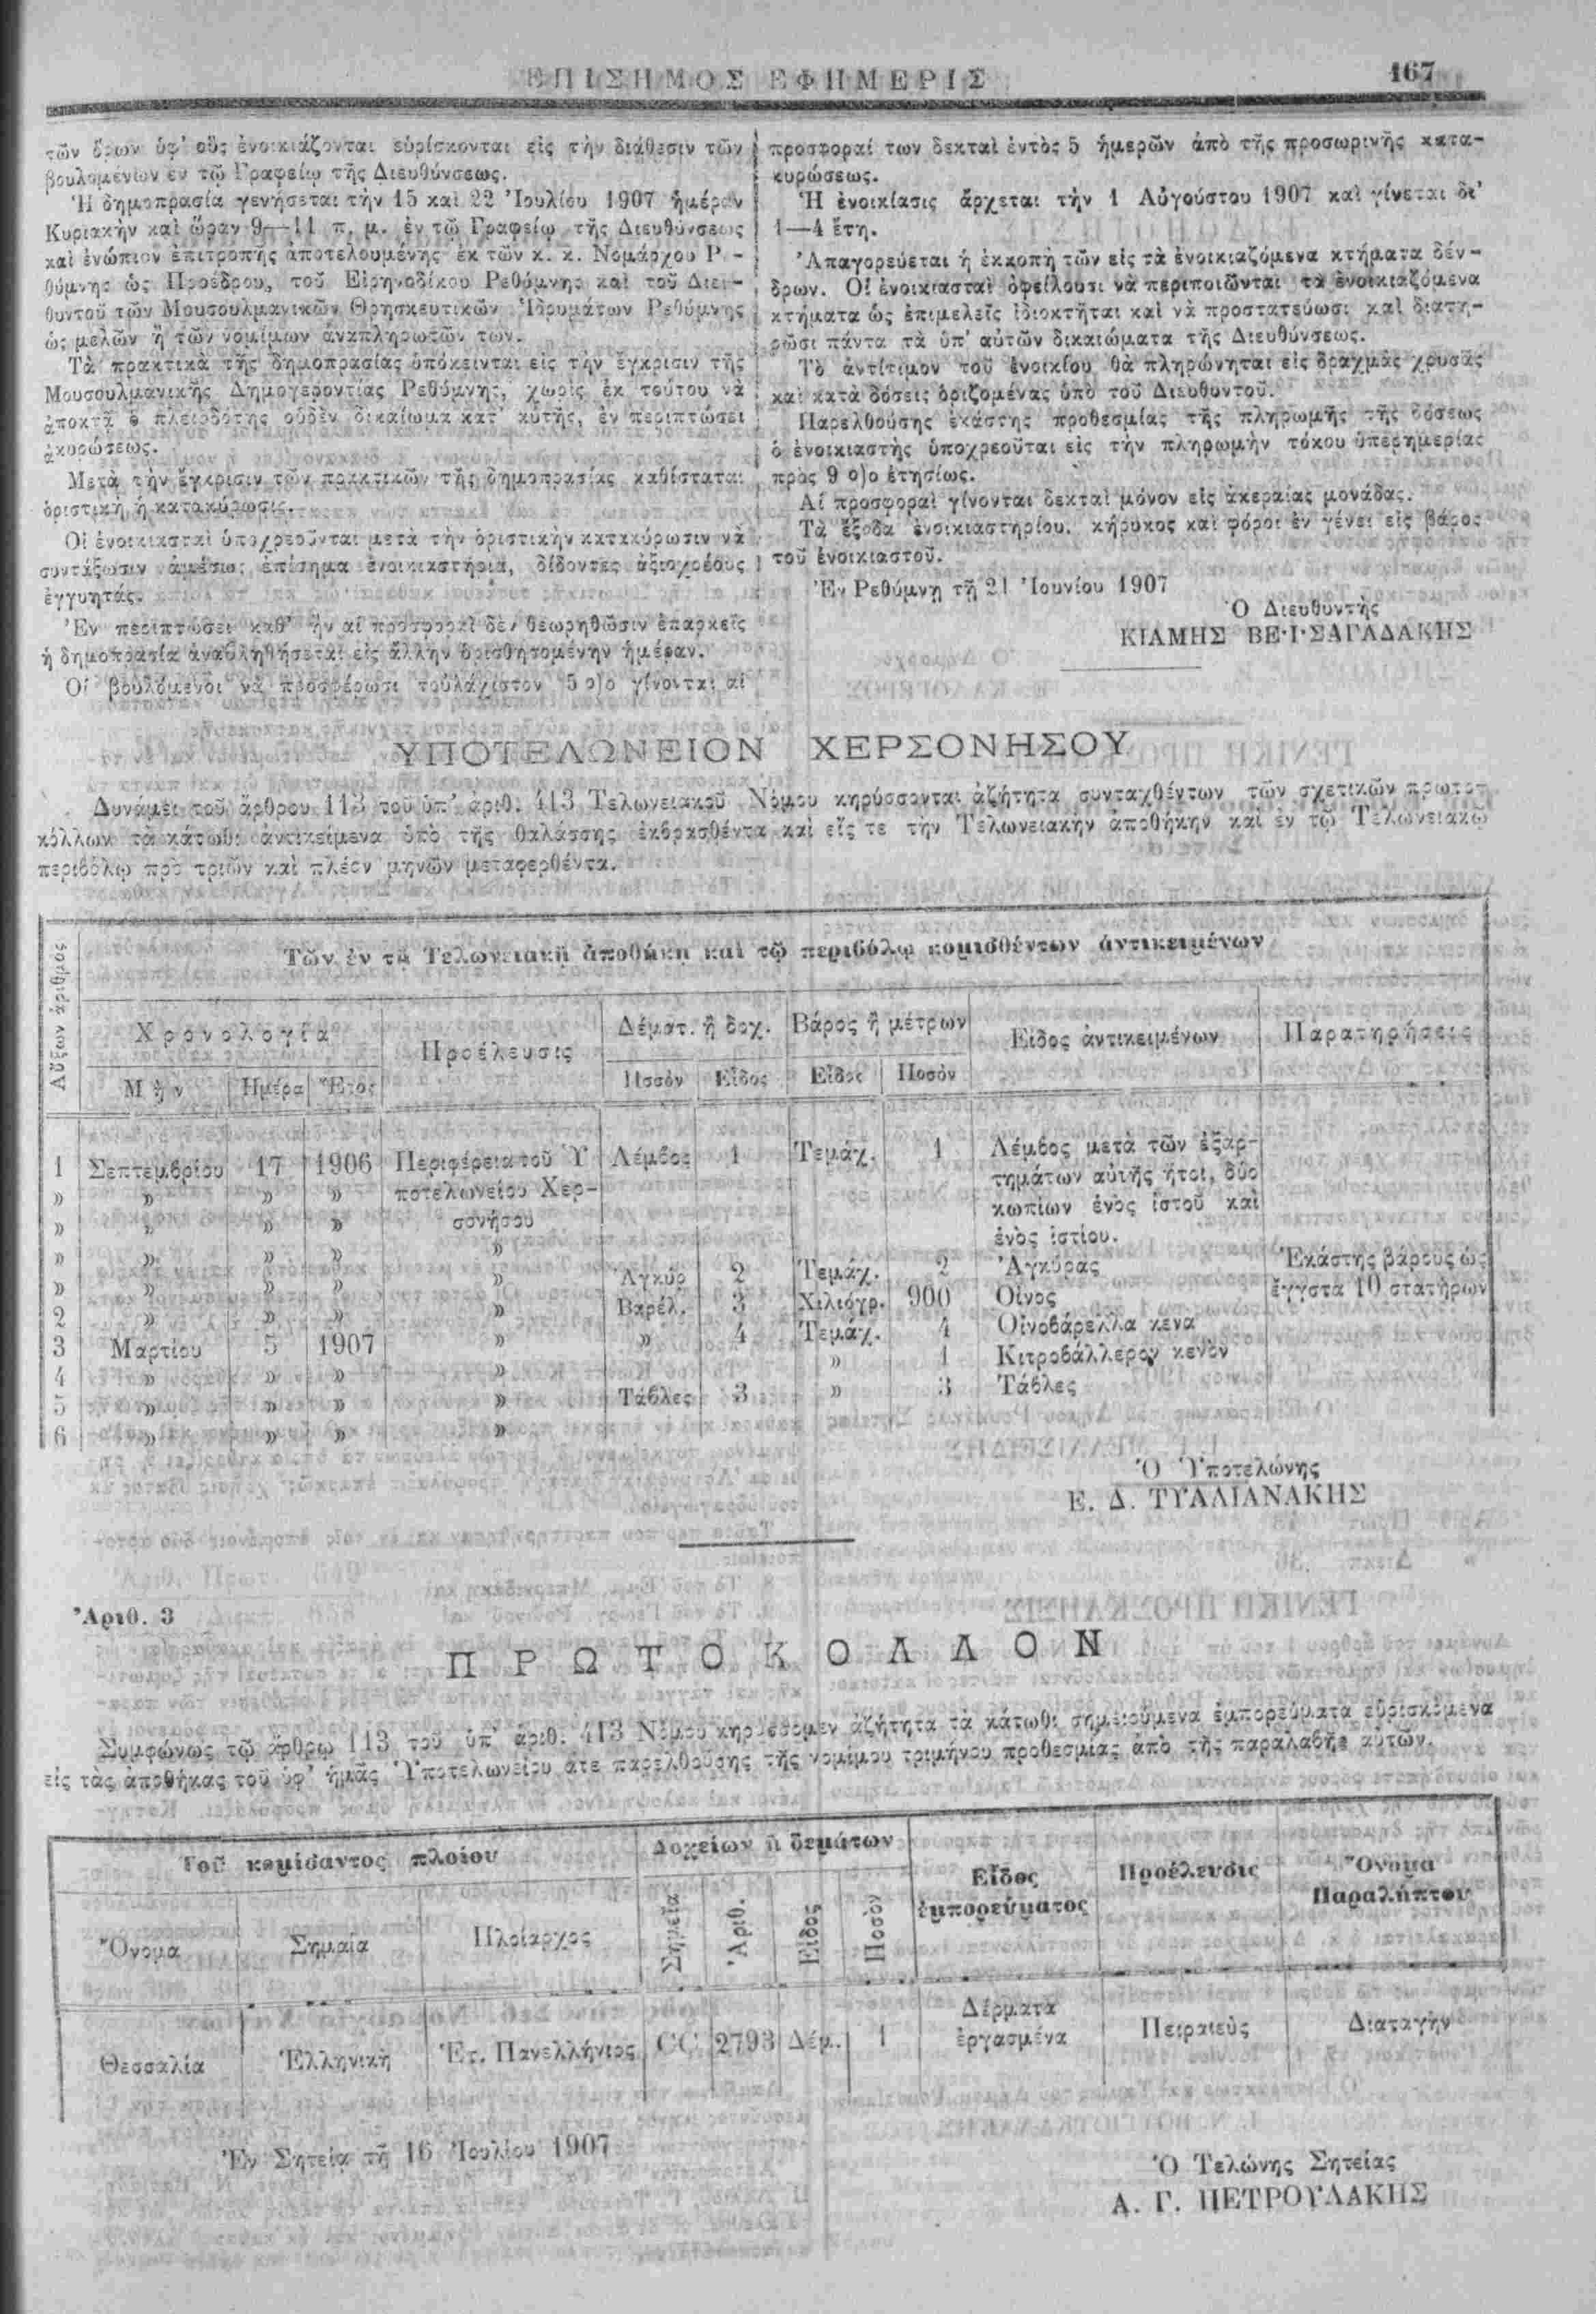 ΕΠΙΣΗΜΟΣ ΕΦΗΜΕΡΙΣ 167
τῶν ὅρων ὑφ' οὓς ἐνοικιάζονται εὑρίσκονται εἰς τὴν διάθεσιν τῶν
βουλομένων ἐν τῷ Γραφείῳ τῆς Διευθύνσεως.
Ἡ δημοπρασία γενήσεται τὴν 15 καὶ 22 Ἰουλίου 1907 ἡμέραν
Κυριακὴν καὶ ὥραν 9—11 π. μ. ἐν τῷ Γραφείῳ τῆς Διευθύνσεως
καὶ ἐνώπιον ἐπιτροπῆς ἀποτελουμένης ἐκ τῶν κ. κ. Νομάρχου Ρε-
θύμνης ὡς Προέδρου, τοῦ Εἰρηνοδίκου Ρεθύμνης καὶ τοῦ Διευ-
θυντοῦ τῶν Μουσουλμανικῶν Θρησκευτικῶν Ἱδρυμάτων Ρεθύμνης
ὡς μελῶν ἢ τῶν νομίμων ἀναπληρωτῶν των.
Τὰ πρακτικὰ τῆς δημοπρασίας ὑπόκεινται εἰς τὴν ἔγκρισιν τῆς
Μουσουλμανικῆς Δημογεροντίας Ρεθύμνης, χωρὶς ἐκ τούτου νὰ
ἀποκτᾷ ὁ πλειοδότης οὐδὲν δικαίωμα κατ' αὐτῆς, ἐν περιπτώσει
ἀκυρώσεως.
Μετὰ τὴν ἔγκρισιν τῶν πρακτικῶν τῆς δημοπρασίας καθίσταται
ὁριστικὴ ἡ κατακύρωσις.
Οἱ ἐνοικιασταὶ ὑποχρεοῦνται μετὰ τὴν ὁριστικὴν κατακύρωσιν νὰ
συντάξωσιν ἀμέσως ἐπίσημα ἐνοικιαστήρια, δίδοντες ἀξιοχρέους
ἐγγυητάς.
Ἐν περιπτώσει καθ' ἣν αἱ προσφοραὶ δὲν θεωρηθῶσιν ἐπαρκεῖς
ἡ δημοπρασία ἀναβληθήσεται εἰς ἄλλην ὁρισθησομένην ἡμέραν.
Οἱ βουλόμενοι νὰ προσφέρωσι τοὐλάχιστον 5 ο)ο γίνονται αἱ
προσφοραί των δεκταὶ ἐντὸς 5 ἡμερῶν ἀπὸ τῆς προσωρινῆς κατα-
κυρώσεως.
Ἡ ἐνοικίασις ἄρχεται τὴν 1 Αὐγούστου 1907 καὶ γίνεται δι'
1—4 ἔτη.
Ἀπαγορεύεται ἡ ἐκκοπὴ τῶν εἰς τὰ ἐνοικιαζόμενα κτήματα δέν-
δρων. Οἱ ἐνοικιασταὶ ὀφείλουσι νὰ περιποιῶνται τὰ ἐνοικιαζόμενα
κτήματα ὡς ἐπιμελεῖς ἰδιοκτῆται καὶ νὰ προστατεύωσι καὶ διατη-
ρῶσι πάντα τὰ ὑπ' αὐτῶν δικαιώματα τῆς Διευθύνσεως.
Τὸ ἀντίτιμον τοῦ ἐνοικίου θὰ πληρώνηται εἰς δραχμὰς χρυσᾶς
καὶ κατὰ δόσεις ὁριζομένας ὑπὸ τοῦ Διευθυντοῦ.
Παρελθούσης ἑκάστης προθεσμίας τῆς πληρωμῆς τῆς δόσεως
ὁ ἐνοικιαστὴς ὑποχρεοῦται εἰς τὴν πληρωμὴν τόκου ὑπερημερίας
πρὸς 9 ο)ο ἐτησίως.
Αἱ προσφοραὶ γίνονται δεκταὶ μόνον εἰς ἀκεραίας μονάδας.
Τὰ ἔξοδα ἐνοικιαστηρίου, κήρυκος καὶ φόροι ἐν γένει εἰς βάρος
τοῦ ἐνοικιαστοῦ.
Ἐν Ρεθύμνῃ τῇ 21 Ἰουνίου 1907
Ὁ Διευθυντὴς
ΚΙΑΜΗΣ ΒΕΪΣΑΓΑΔΑΚΗΣ
ΥΠΟΤΕΛΩΝΕΙΟΝ ΧΕΡΣΟΝΗΣΟΥ
Δυνάμει τοῦ ἄρθρου 113 τοῦ ὑπ' ἀριθ. 413 Τελωνειακοῦ Νόμου κηρύσσονται ἀζήτητα συνταχθέντων τῶν σχετικῶν πρωτο-
κόλλων τὰ κάτωθι ἀντικείμενα ὑπὸ τῆς θαλάσσης ἐκβρασθέντα καὶ εἴς τε τὴν Τελωνειακὴν ἀποθήκην καὶ ἐν τῷ Τελωνειακῷ
περιβόλῳ πρὸ τριῶν καὶ πλέον μηνῶν μεταφερθέντα.
Αὔξων ἀριθμὸς
Τῶν ἐν τῇ Τελωνειακῇ ἀποθήκῃ καὶ τῷ περιβόλῳ κομισθέντων ἀντικειμένων
Χρονολογία Προέλευσις Δέματ. ἢ δοχ. Βάρος ἢ μέτρων Εἶδος ἀντικειμένων Παρατηρήσεις
Μὴν Ἡμέρα Ἔτος Ποσὸν Εἶδος Εἶδος Ποσὸν
1 Σεπτεμβρίου 17 1906 Περιφέρεια τοῦ Ὑ Λέμβος 1 Τεμάχ. 1 Λέμβος μετὰ τῶν ἐξαρ-
» » » » ποτελωνείου Χερ- τημάτων αὐτῆς ἤτοι, δύο
» » » » σονήσου κωπίων ἑνὸς ἱστοῦ καὶ
ἑνὸς ἱστίου.
» » » » » Ἀγκύρ 2 Τεμάχ. 2 Ἀγκύρας Ἑκάστης βάρους ὡς
» » » » » Βαρέλ. 3 Χιλιόγρ. 900 Οἶνος ἔγγστα 10 στατήρων
2 » » » » » 4 Τεμάχ. 4 Οἰνοβάρελλα κενὰ
3 Μαρτίου 5 1907 » » 1 Κιτροβάλλερον κενὸν
4 » » » » Τάβλες 3 » 3 Τάβλες
5 » » » »
6 » » » »
Ὁ Ὑποτελώνης
Ε. Δ. ΤΥΛΛΙΑΝΑΚΗΣ
Ἀριθ. 3
ΠΡΩΤΟΚΟΛΛΟΝ
Συμφώνως τῷ ἄρθρῳ 113 τοῦ ὑπ' ἀριθ. 413 Νόμου κηρύσσομεν ἀζήτητα τὰ κάτωθι σημειούμενα ἐμπορεύματα εὑρισκόμενα
εἰς τὰς ἀποθήκας τοῦ ὑφ' ἡμᾶς Ὑποτελωνείου ἅτε παρελθούσης τῆς νομίμου τριμήνου προθεσμίας ἀπὸ τῆς παραλαβῆς αὐτῶν.
Τοῦ κομίσαντος πλοίου Δοχείων ἢ δεμάτων Εἶδος ἐμπορεύματος Προέλευσις Ὄνομα Παραλήπτου
Ὄνομα Σημαία Πλοίαρχος Σημεῖα Ἀριθ. Εἶδος Ποσὸν
Θεσσαλία Ἑλληνικὴ Ἑτ. Πανελλήνιος CC 2793 Δέμ. 1 Δέρματα ἐργασμένα Πειραιεὺς Διαταγὴν
Ἐν Σητείᾳ τῇ 16 Ἰουλίου 1907
Ὁ Τελώνης Σητείας
Α. Γ. ΠΕΤΡΟΥΛΑΚΗΣ